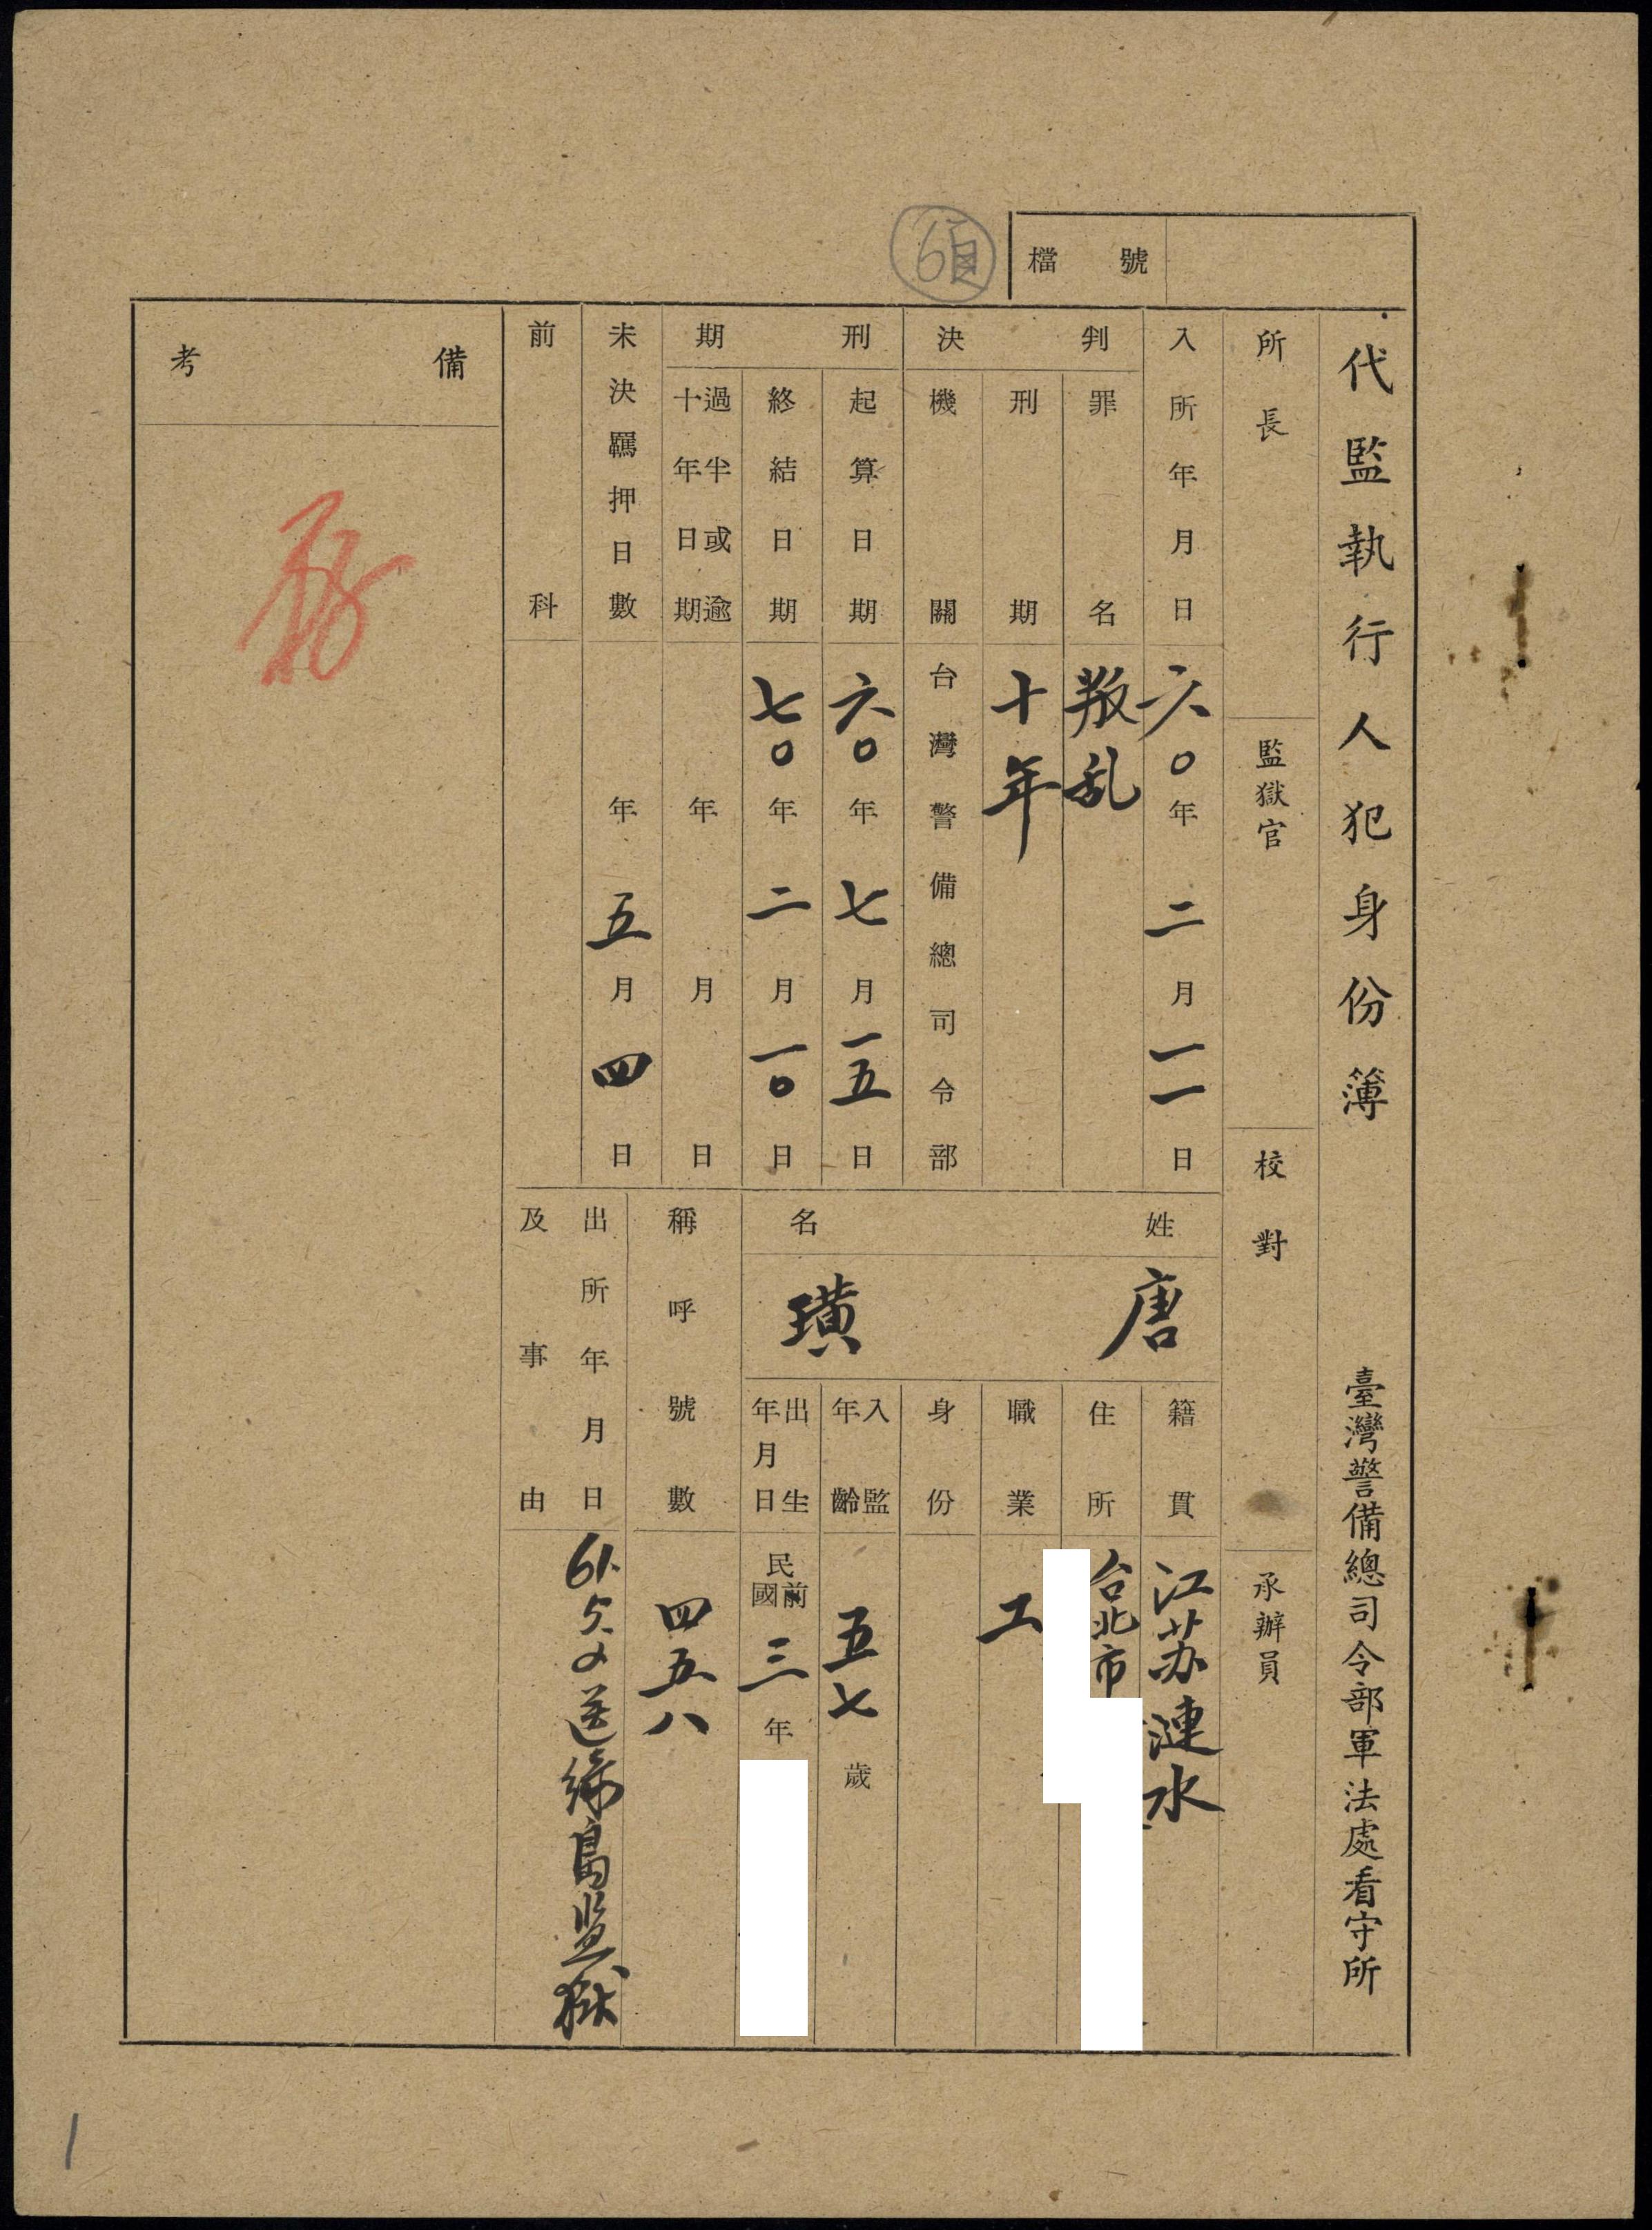 檔號
6頁
代監執行人犯身份簿 臺灣警備總司令部軍法處看守所
所長 監獄官 校對 承辦員
入所年月日 六〇年二月一一日
判決
罪名 叛乱
刑期 十年
機關 台灣警備總司令部
刑期
起算日期 六〇年七月一五日
終結日期 七〇年二月一〇日
過半或逾十年日期 年月日
未決羈押日數 年五月四日
前科
姓名
唐璜
籍貫 江苏漣水
住所 台北市
職業 工
身份
入監年齡 五七歲
出生年月日 民國前三年
稱呼號數 四五八
出所年月日及事由 61.5. 送綠島监獄
備考
1